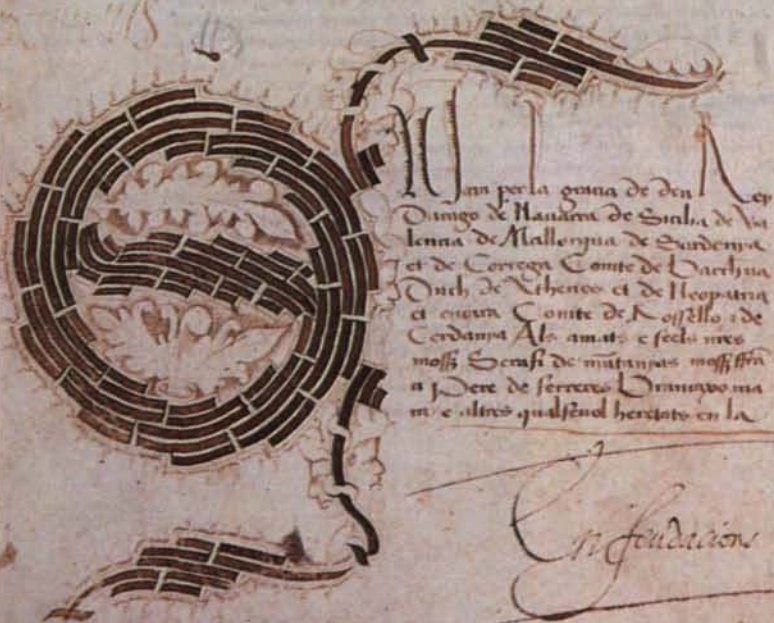 Joan per la gracia de deu Rey
Darago de Nauarra de Sicilia de Va
lencia de Mallorqua de Serdenya
et de Correga Comte de Barchna
Duch de Athenes et de Neopatria
et encara Comte de Rossello e de
Cerdanya Als amats e feels nres
moss Serafi de mutanyas moss ffra
Pere de ferreres
e altres qualseuol heretats en la
En feudacions